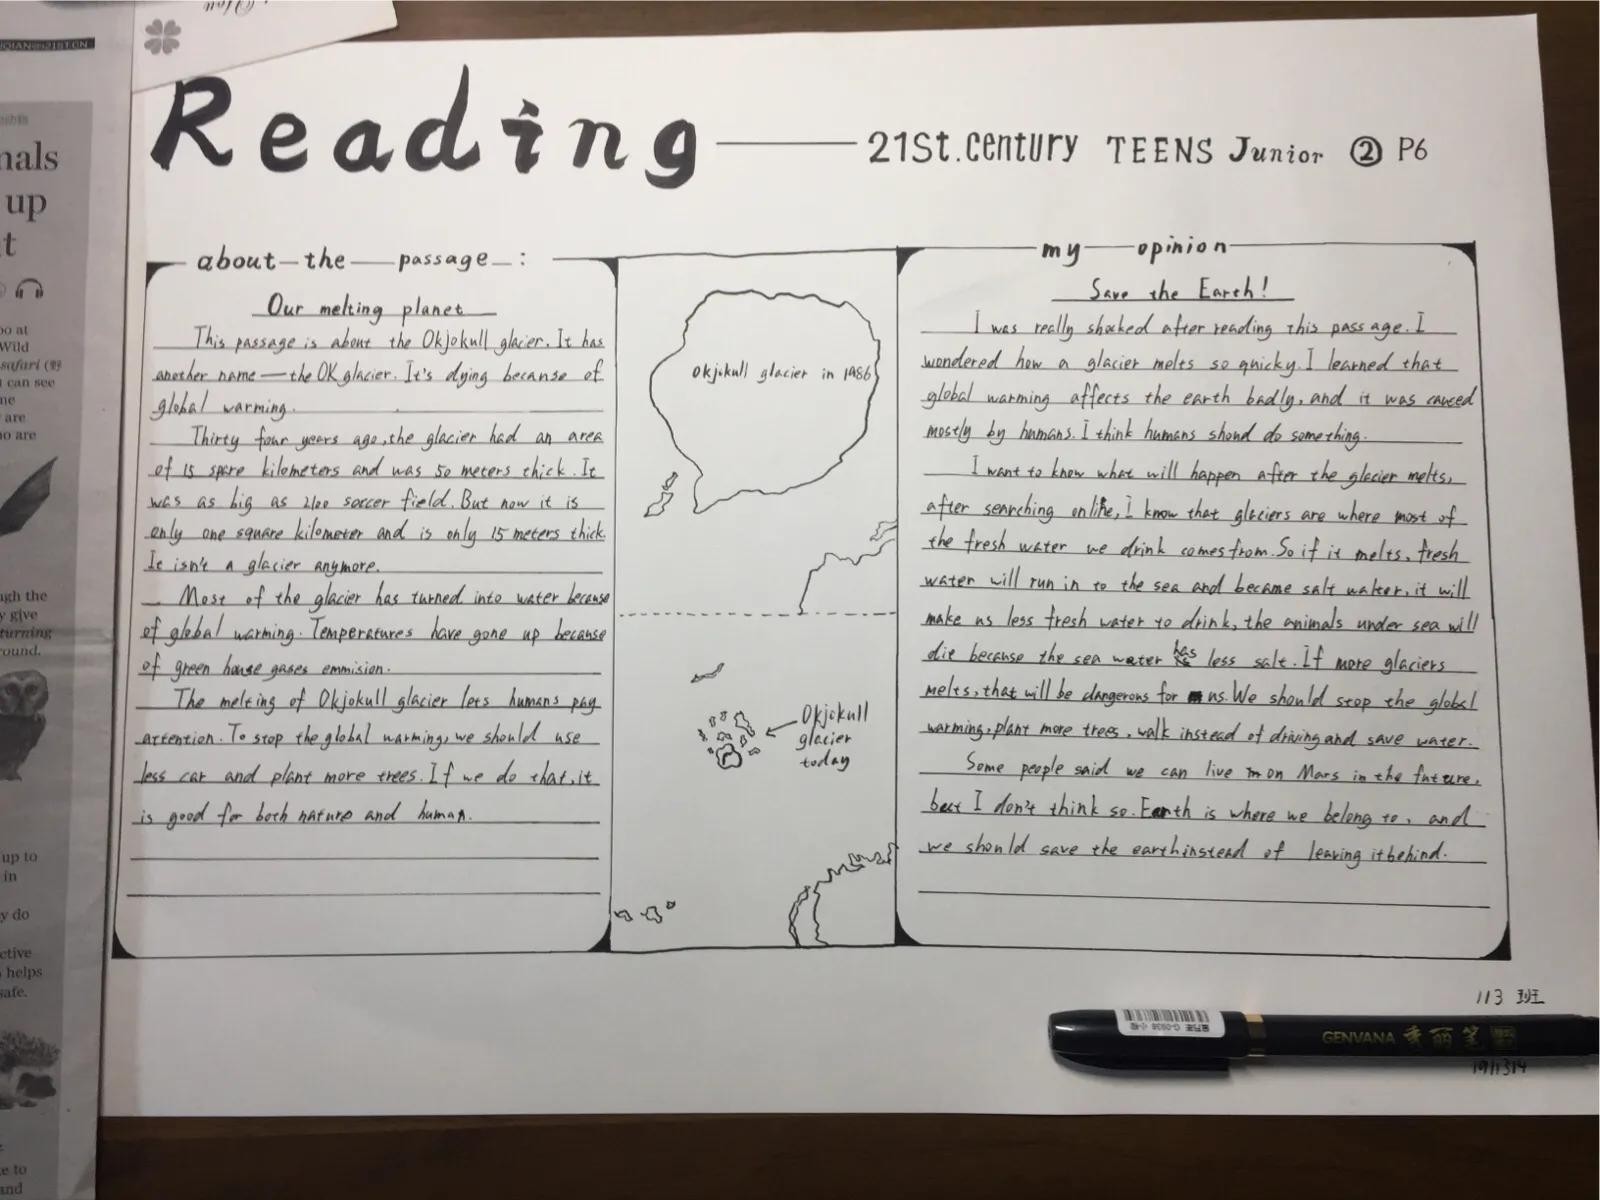 JQIAN@21ST.CN
nals
up
t
oo at
Wild
safari (野
can see
ne
are
no are
ugh the
y give
turning
round.
up to
in
y do
ctive
helps
safe.
e to
and
Reading — 21St.century TEENS Junior ② P6
about the passage :
Our melting planet
This passage is about the Okjokull glacier. It has
another name — the OK glacier. It's dying because of
global warming.
Thirty four years ago, the glacier had an area
of 15 spare kilometers and was 50 meters thick. It
was as big as 2100 soccer field. But now it is
only one square kilometer and is only 15 meters thick.
It isn't a glacier anymore.
Most of the glacier has turned into water because
of global warming. Temperatures have gone up because
of green house gases emmision.
The melting of Okjokull glacier lets humans pay
attention. To stop the global warming, we should use
less car and plant more trees. If we do that, it
is good for both nature and human.
Okjokull glacier in 1986
Okjokull
glacier
today
my opinion
Save the Earth!
I was really shocked after reading this passage. I
wondered how a glacier melts so quicky. I learned that
global warming affects the earth badly, and it was caused
mostly by humans. I think humans shoud do something.
I want to know what will happen after the glacier melts,
after searching online, I know that glaciers are where most of
the fresh water we drink comes from. So if it melts, fresh
water will run in to the sea and became salt water, it will
make us less fresh water to drink, the animals under sea will
die because the sea water has less salt. If more glaciers
melts, that will be dangerous for us. We should stop the global
warming, plant more trees, walk instead of driving and save water.
Some people said we can live on Mars in the future,
but I don't think so. Earth is where we belong to, and
we should save the earth instead of leaving it behind.
113 班
GENVANA 秀丽笔
G-0938 小楷